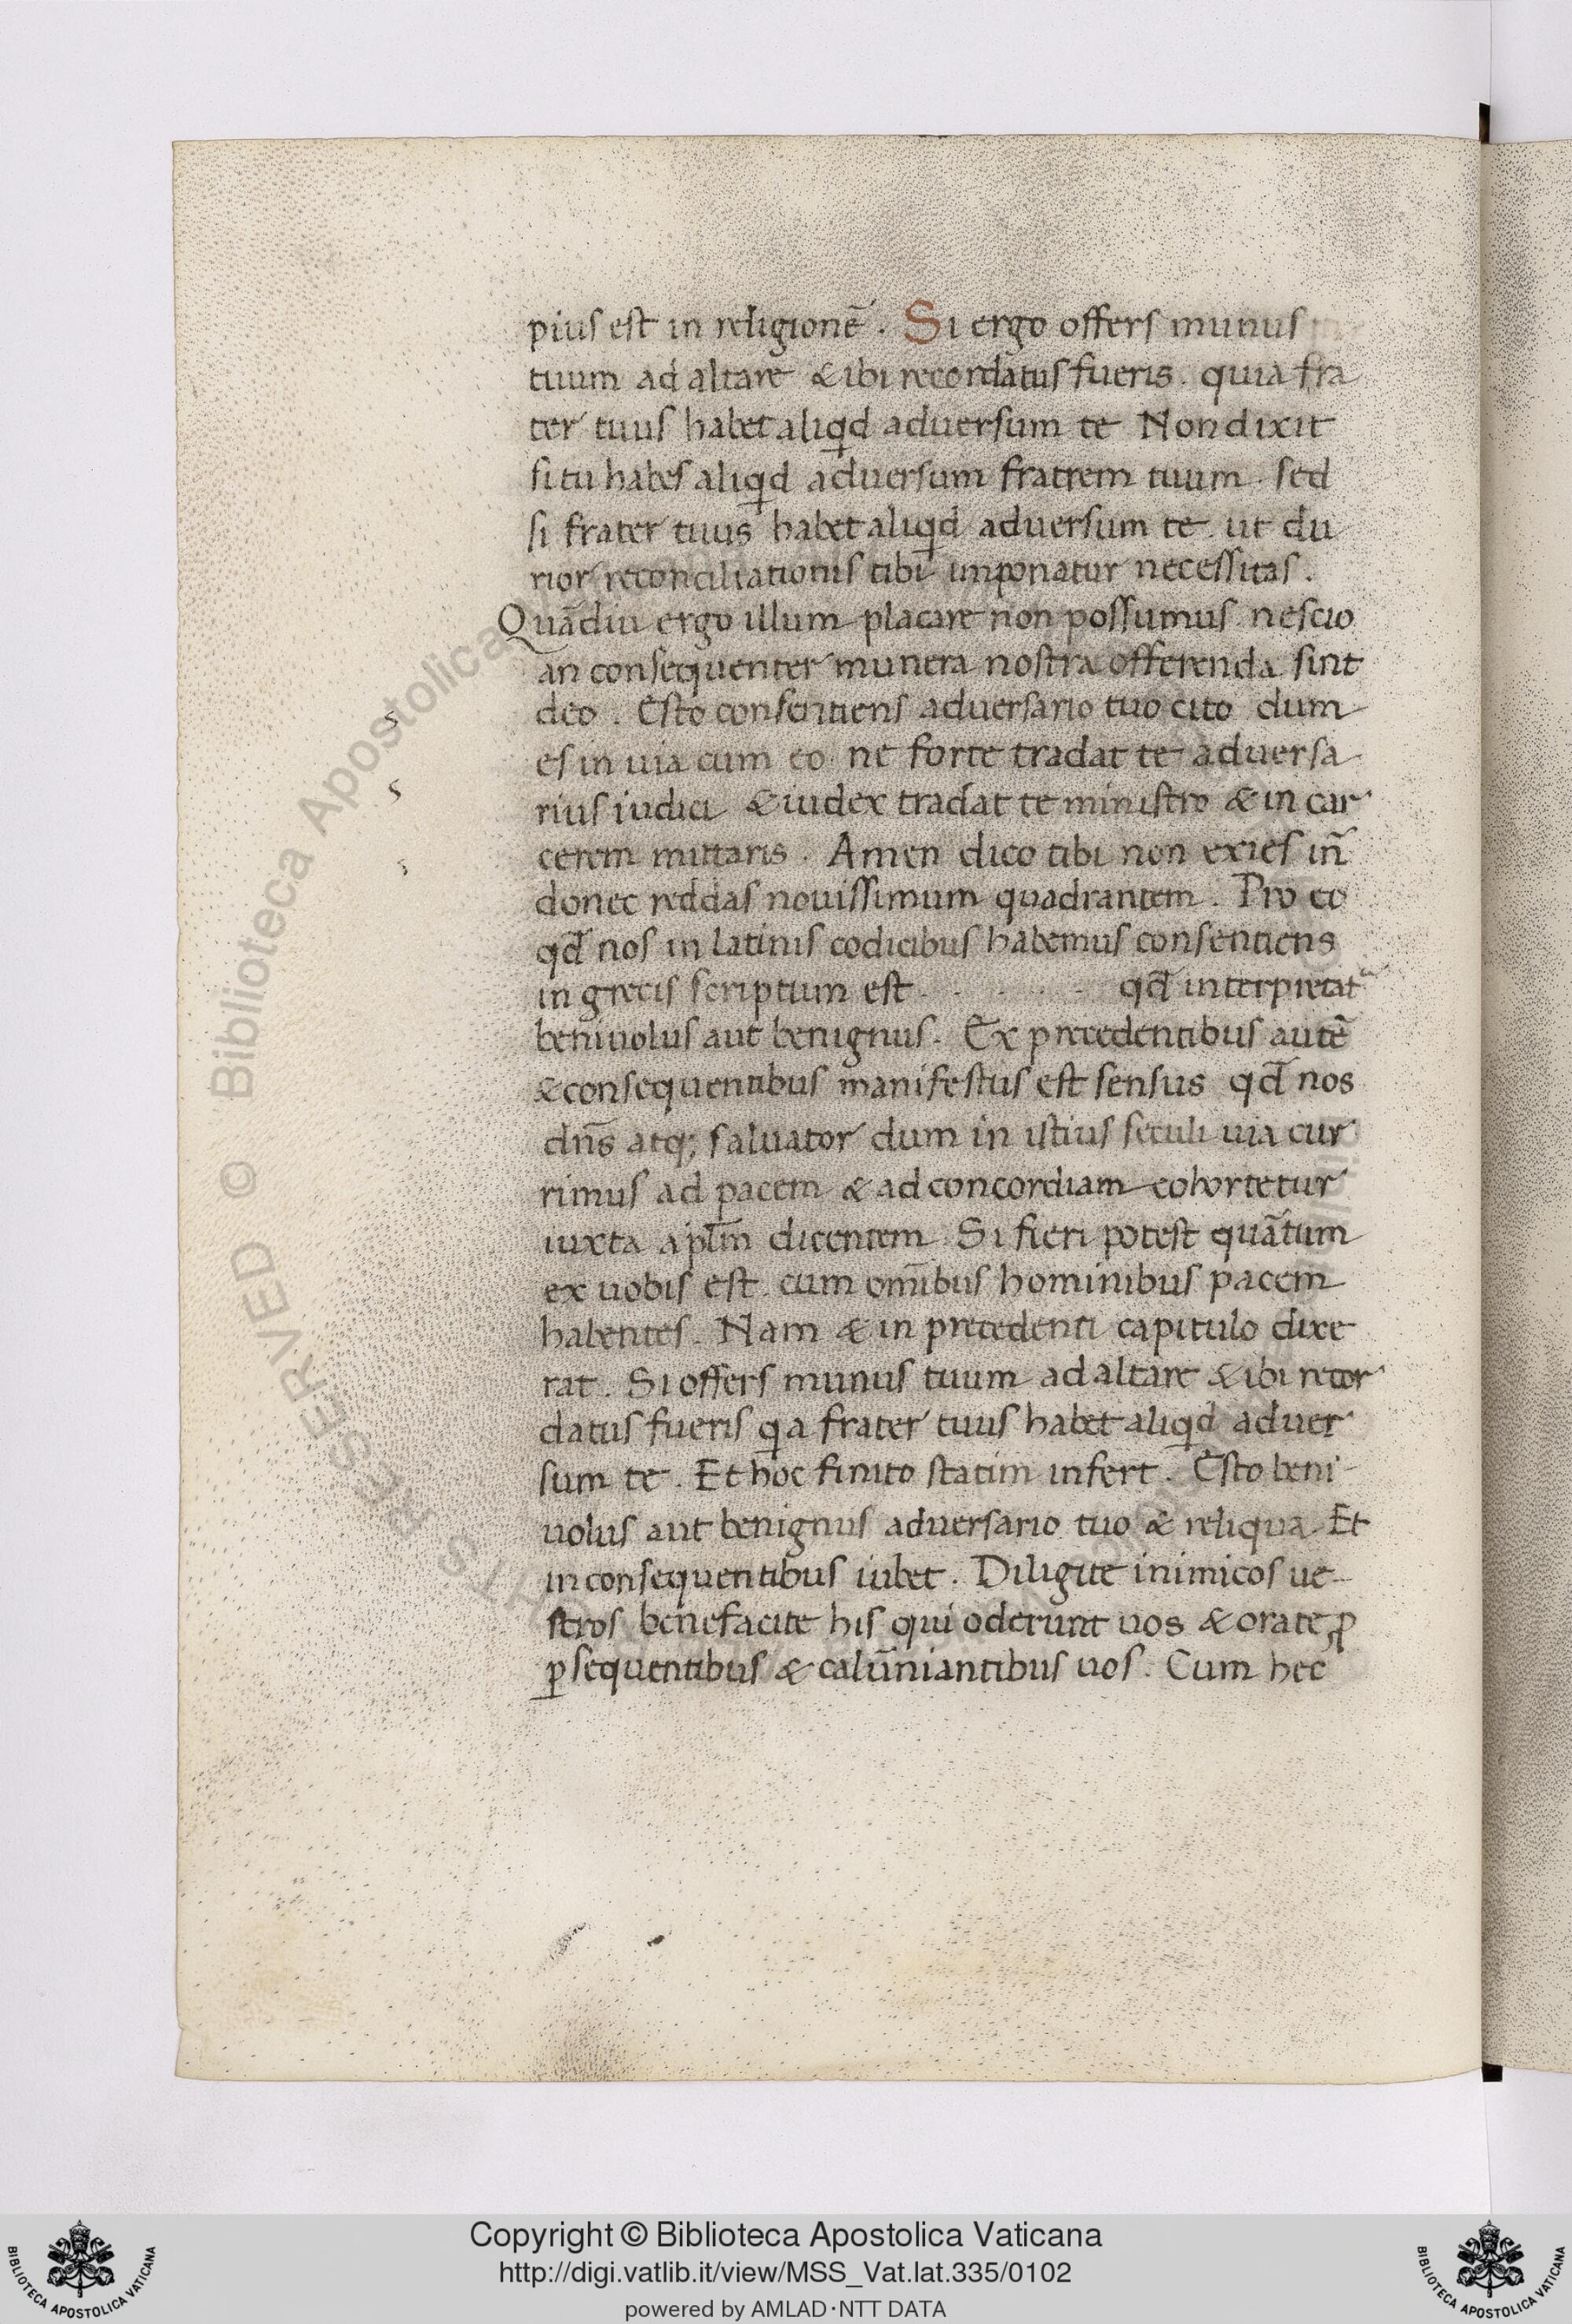 pius est in religionē. Si ergo offers munus
tuum ad altare & ibi recordatus fueris. quia fra
ter tuus habet aliqid aduersum te Non dixit
si tu habes aliqid aduersum fratrem tuum. sed
si frater tuus habet aliqid aduersum te. ut du
rior reconciliationis tibi imponatur necessitas.
Quādiu ergo illum placare non possumus nescio
an consequenter munera nostra offerenda sint
deo. Esto consentiens aduersario tuo cito dum
es in uia cum eo. ne forte tradat te aduersa
rius iudici & iudex tradat te ministro & in car
cerem mittaris. Amen dico tibi non exies iñ
donec reddas nouissimum quadrantem. Pro eo
qd̄ nos in latinis codicibus habemus consentiens
in grecis scriptum est . . . . . . qd̄ interpretat
beniuolus aut benignus. Ex precedentibus autē
& consequentibus manifestus est sensus qd̄ nos
dn̄s atq; saluator dum in istius seculi uia cur
rimus ad pacem & ad concordiam cohortetur
iuxta apl̄m dicentem. Si fieri potest quātum
ex uobis est. cum om̄ibus hominibus pacem
habentes. Nam & in precedenti capitulo dixe
rat. Si offers munus tuum ad altare & ibi recor
datus fueris qa frater tuus habet aliqid aduer
sum te. Et hoc finito statim infert. Esto beni
uolus aut benignus aduersario tuo & reliqua. Et
in consequentibus iubet. Diligite inimicos ue-
stros benefacite his qui oderunt uos & orate ꝓ
ꝑsequentibus & calūniantibus uos. Cum hec
Copyright © Biblioteca Apostolica Vaticana
http://digi.vatlib.it/view/MSS_Vat.lat.335/0102
powered by AMLAD·NTT DATA
BIBLIOTECA APOSTOLICA VATICANA
BIBLIOTECA APOSTOLICA VATICANA